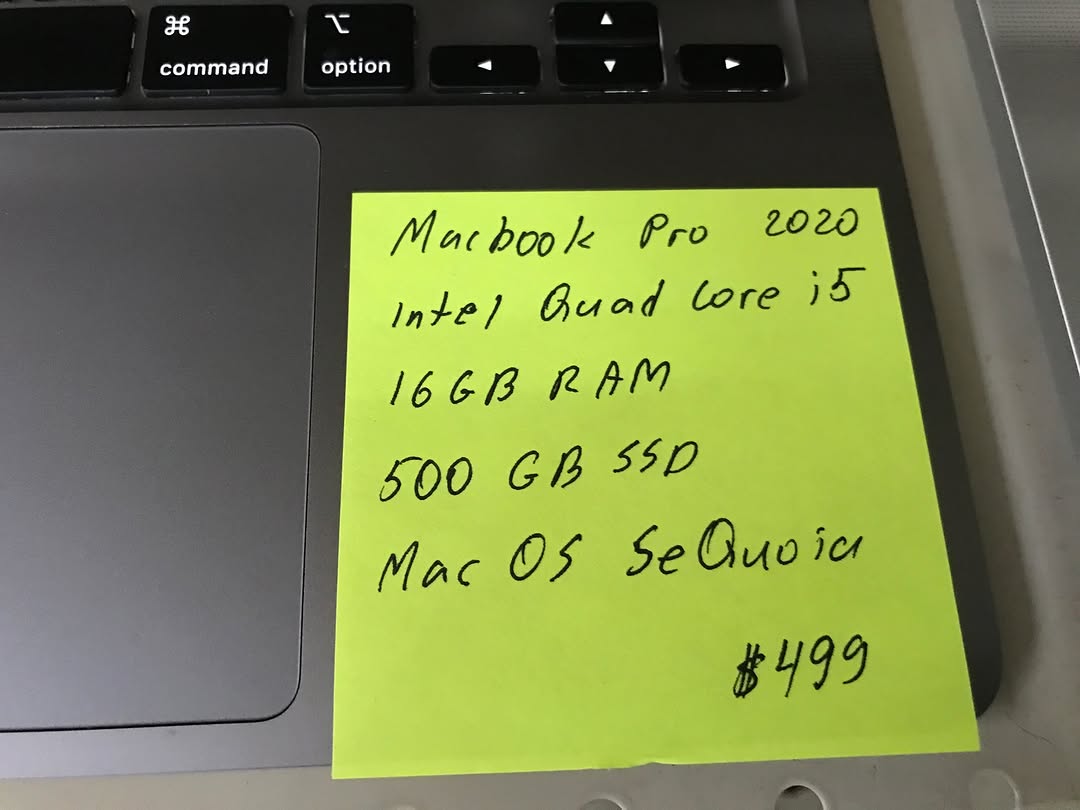 ⌘ ⌥
command option ◄ ▲ ▼ ►
Macbook Pro 2020
Intel Quad Core i5
16GB RAM
500 GB SSD
Mac OS SeQuoia
$499